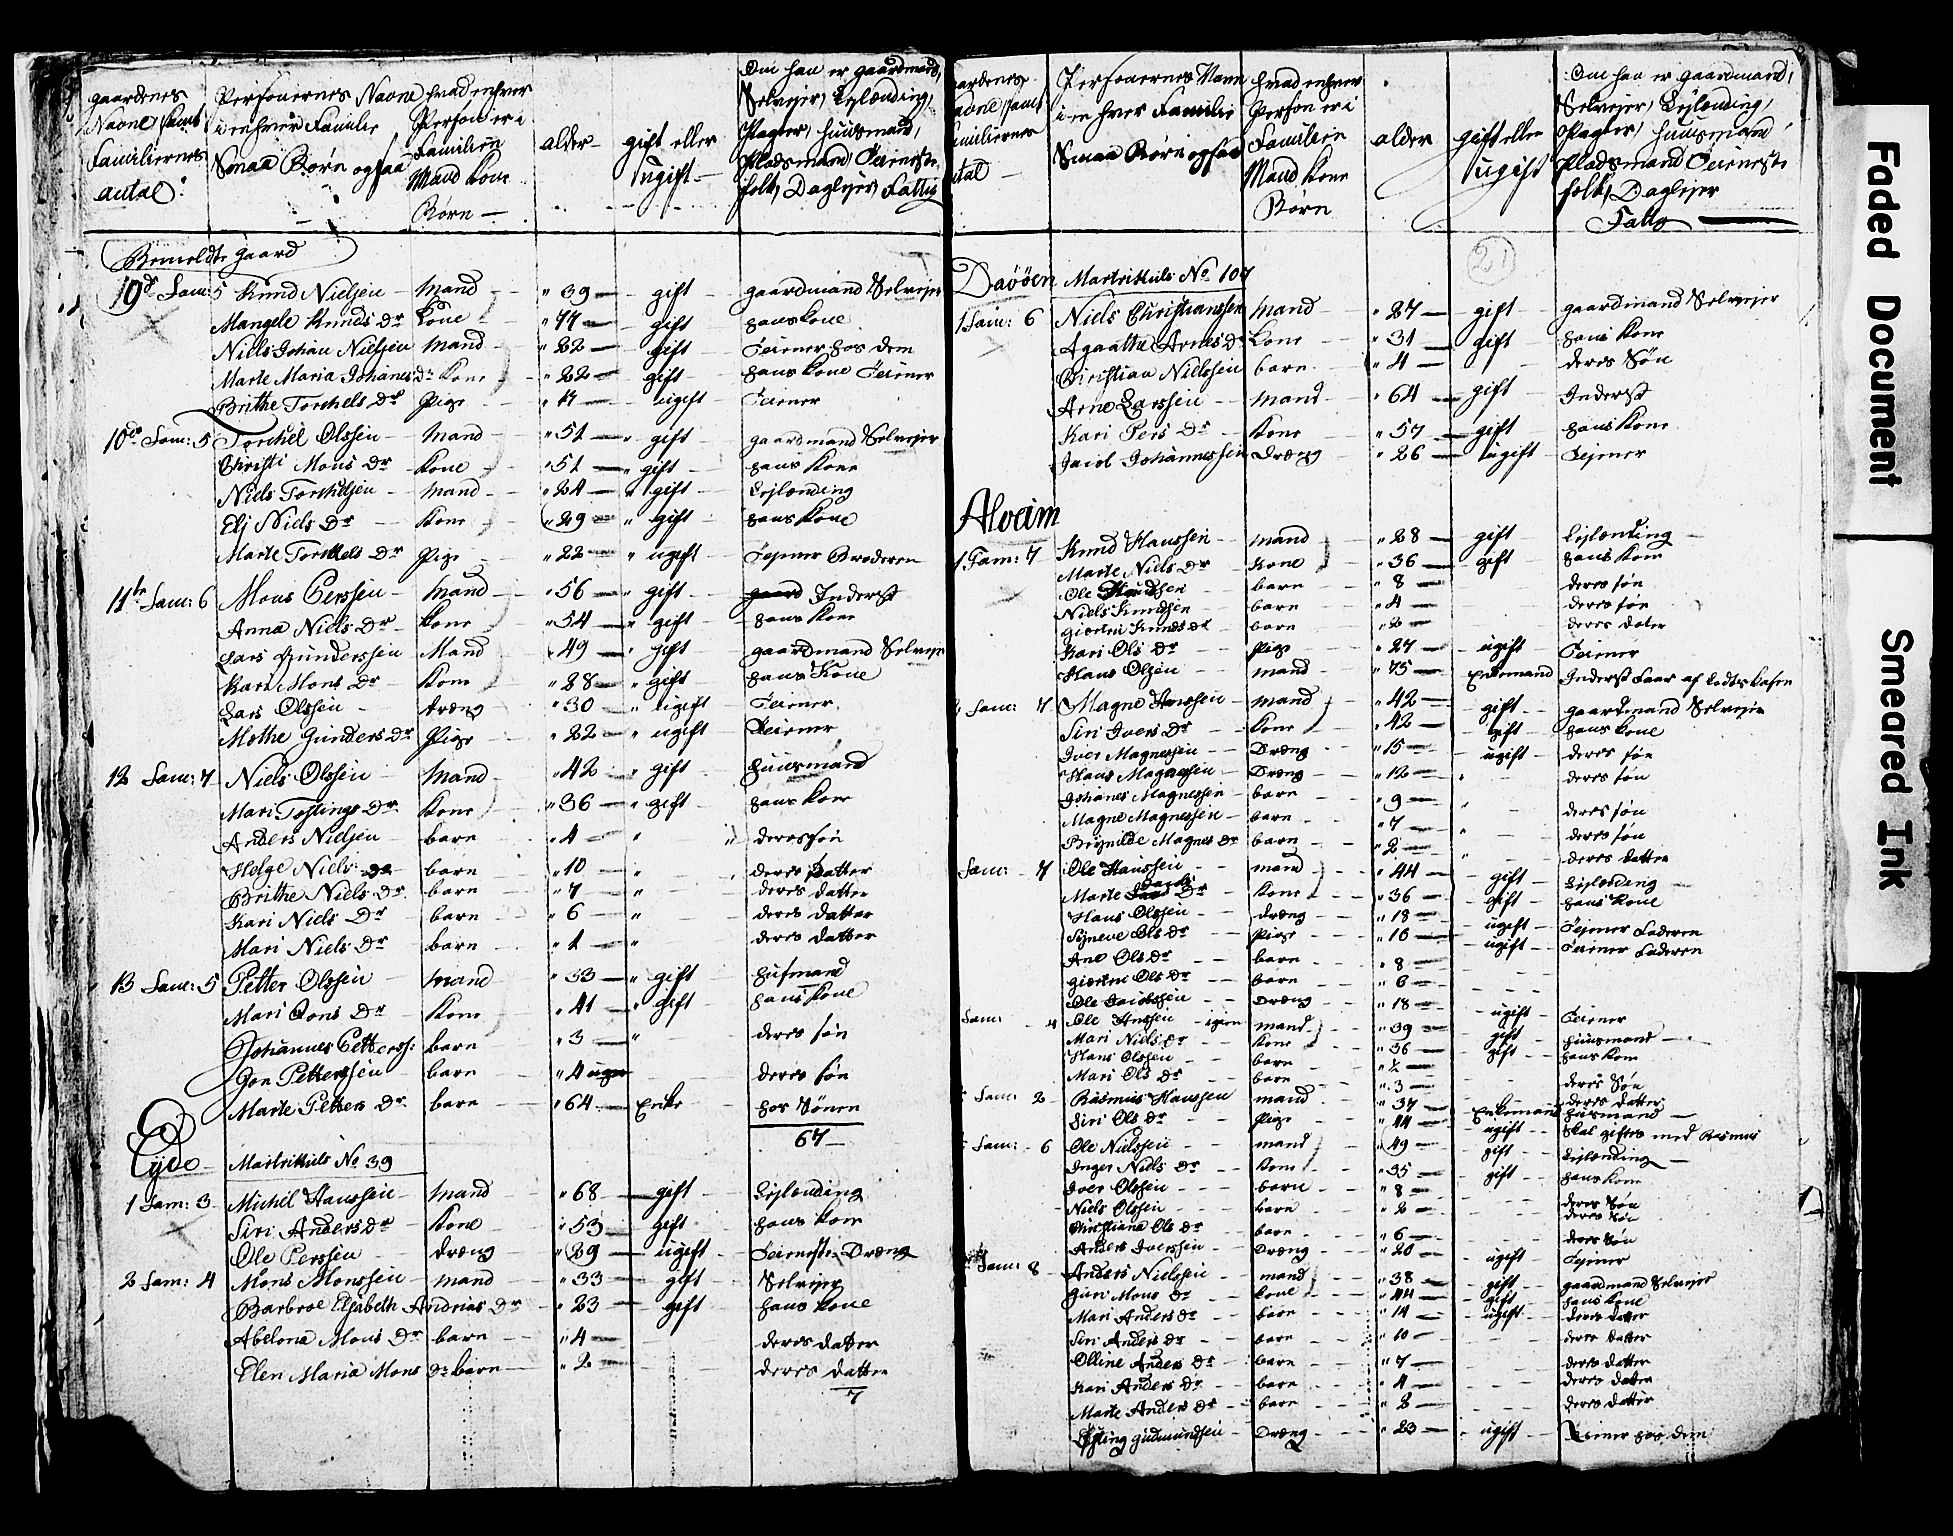 gaardenes
Navne samt
Familiernes
antal
Personernes Navne
i enhver Familie
Smaa Børn ogsaa
hvad enhver
Person er i
Familien
Mand Kone
Børn
alder
gift eller
ugift
Om han er gaardmand,
Selvejer, Lejlænding,
Pagter, huusmand,
Pladsmand Tieneste
folk, Daglejer, Fattig
gaard
19de Fam: 5 Knud Nielsen Mand 39 gift gaardmand Selvejer
Knuds Dr Kone gift hans kone
Niels Johan Nielsen Mand 22 gift Tiener hos dem
Marte Maria Johanes Dr Kone 22 gift hans kone Tiener
Brithe Torchels Dr Pige ugift Tiener
10de Fam: 5 Torchel Olssen Mand 51 gift gaardmand Selvejer
Christi Mons Dr Kone 51 gift hans Kone
Niels Torchelsen Mand 24 gift Lejlænding
Elj Niels Dr Kone 29 gift hans kone
Marte Torchels Dr Pige 22 ugift Tejener Broderen
11te Fam: 6 Mons Perssen Mand 56 gift gaard Inderst
Anna Niels Dr Kone 54 gift hans Kone
Lars Gunderssen Mand 49 gift gaardmand Selveje
Kari Mons Dr Kone 28 gift hans Kone
Lars Olssen dræng 30 ugift Tiener
Mothe Gunders Dr Pige 22 ugift Tiener
12 Fam: 7 Niels Olssen Mand 42 gift huusmand
Mari Tostings Dr Kone 36 gift hans kone
Anders Nielsen barn 4 deres søn
Helge Niels Dr barn 10 deres datter
Brithe Niels Dr barn 7 deres datter
Kari Niels Dr barn 6 deres datter
Mari Niels Dr barn 1 deres datter
13 Fam: 5 Petter Olssen Mand 33 gift husmand
Mari Jons Dr Kone 41 gift hans kone
Johannes Petterss: barn 3 deres søn
Jon Petterssen barn 4 uger deres søn
Marte Petters Dr barn 64 Enke hos Sønen
67
Eyde Martrikuls No 39
1 Fam: 3 Michel Hanssen Mand 68 gift Lejlænding
Siri Anders Dr Kone 53 gift hans kone
Ole Perssen dræng 29 ugift Tieneste Dræng
2 Fam: 4 Mons Monssen mand 33 gift Selvejer
Barbroe Elsabeth Andrias Dr 23 gift hans kone
Abelona Mons Dr barn 4 deres datter
Elen Maria Mons Dr barn 2 deres datter
7
aardenes
avne samt
amiliernes
tal
Personernes Navn
i en hver Familie
Smaa Børn ogsaa
hvad enhver
Person er i
Familien
Mand Kone
Børn
alder
gift eller
ugift
Om han er gaardmand,
Selvejer, Lejlænding,
Pagter, huusmand
Pladsmand Tieneste
folk, Daglejer
Fattig
21
Martrikuls No 107
1 Fam: 6 Niels Christianssen Mand 27 gift gaardmand Selvejer
Agaathe Arnes Dr Kone 31 gift hans kone
Christian Nielssen barn 4 deres Søn
Arne Larssen Mand 64 gift Inderst
Kari Pers Dr Kone 57 gift hans Kone
Jacob Johannessen Dræng 26 ugift Tejener
Alveim
1 Fam: 7 Knud Hanssen mand 28 gift Lejlænding
Marte Niels Dr Kone 36 gift hans kone
Ole Knudsen barn 8 deres søn
Niels Knudsen barn 4 deres søn
Giertru Knuds Dr barn 2 deres dater
Kari Ols Dr Pige 27 ugift Tiener
Hans Olsen mand 75 Enkemand Inderst
Fam: 7 Magne Hanssen mand 42 gift gaardmand Selvejer
Siri Ivers Dr Kone 42 gift hans kone
Iver Magnessen Dræng 15 ugift deres søn
Hans Magnessen Dræng 12 deres søn
Johanes Magnessen barn 9 deres søn
Magne Magnessen barn 7 deres søn
Brynilde Magnes Dr barn 2 deres datter
Fam: 7 Ole Hanssen mand 44 gift Lejlænding
Marte Jacobs Dr Kone 36 gift hans kone
Hans Olssen dræng 18 ugift Tejener Faderen
Synneve Ols Dr Pige 16 ugift Tiener Faderen
Ane Ols Dr barn 8
Giertru Ols Dr barn 6
Ole Jacobssen Dræng 18 ugift Tiener
Fam: 4 Ole Hnssen igien mand 39 gift huusmand
Mari Niels Dr Kone 36 gift hans kone
Hans Olssen barn ½ deres Søn
Mari Ols Dr barn 3 deres datter
Fam: 2 Rasmus Hanssen mand 37 Enkemand huusmand
Siri Ols Dr Pige 44 ugift skal giftes med Rasmus
Fam: 6 Ole Nielssen mand 49 gift Lejlænding
Inger Niels Dr Kone 35 gift hans kone
Iver Olssen barn 8 deres Søn
Niels Olssen barn 2 deres Søn
Christiana Ols Dr barn 6 deres Søn
Anders Iverssen Dræng 20 ugift Tejener
Fam: 8 Anders Nielssen mand 38 gift gaardmand Selvejer
Guri Mons Dr kone 44 gift hans kone
Mari Anders Dr barn 14 ugift deres datter
Siri Anders Dr barn 10 deres datter
Olline Anders Dr barn 7 deres datter
Kari Anders Dr barn 4 deres datter
Marte Anders Dr barn 2 deres datter
Gudmundsen Dræng 23 ugift Tiener hos dem
Faded Document
Smeared Ink